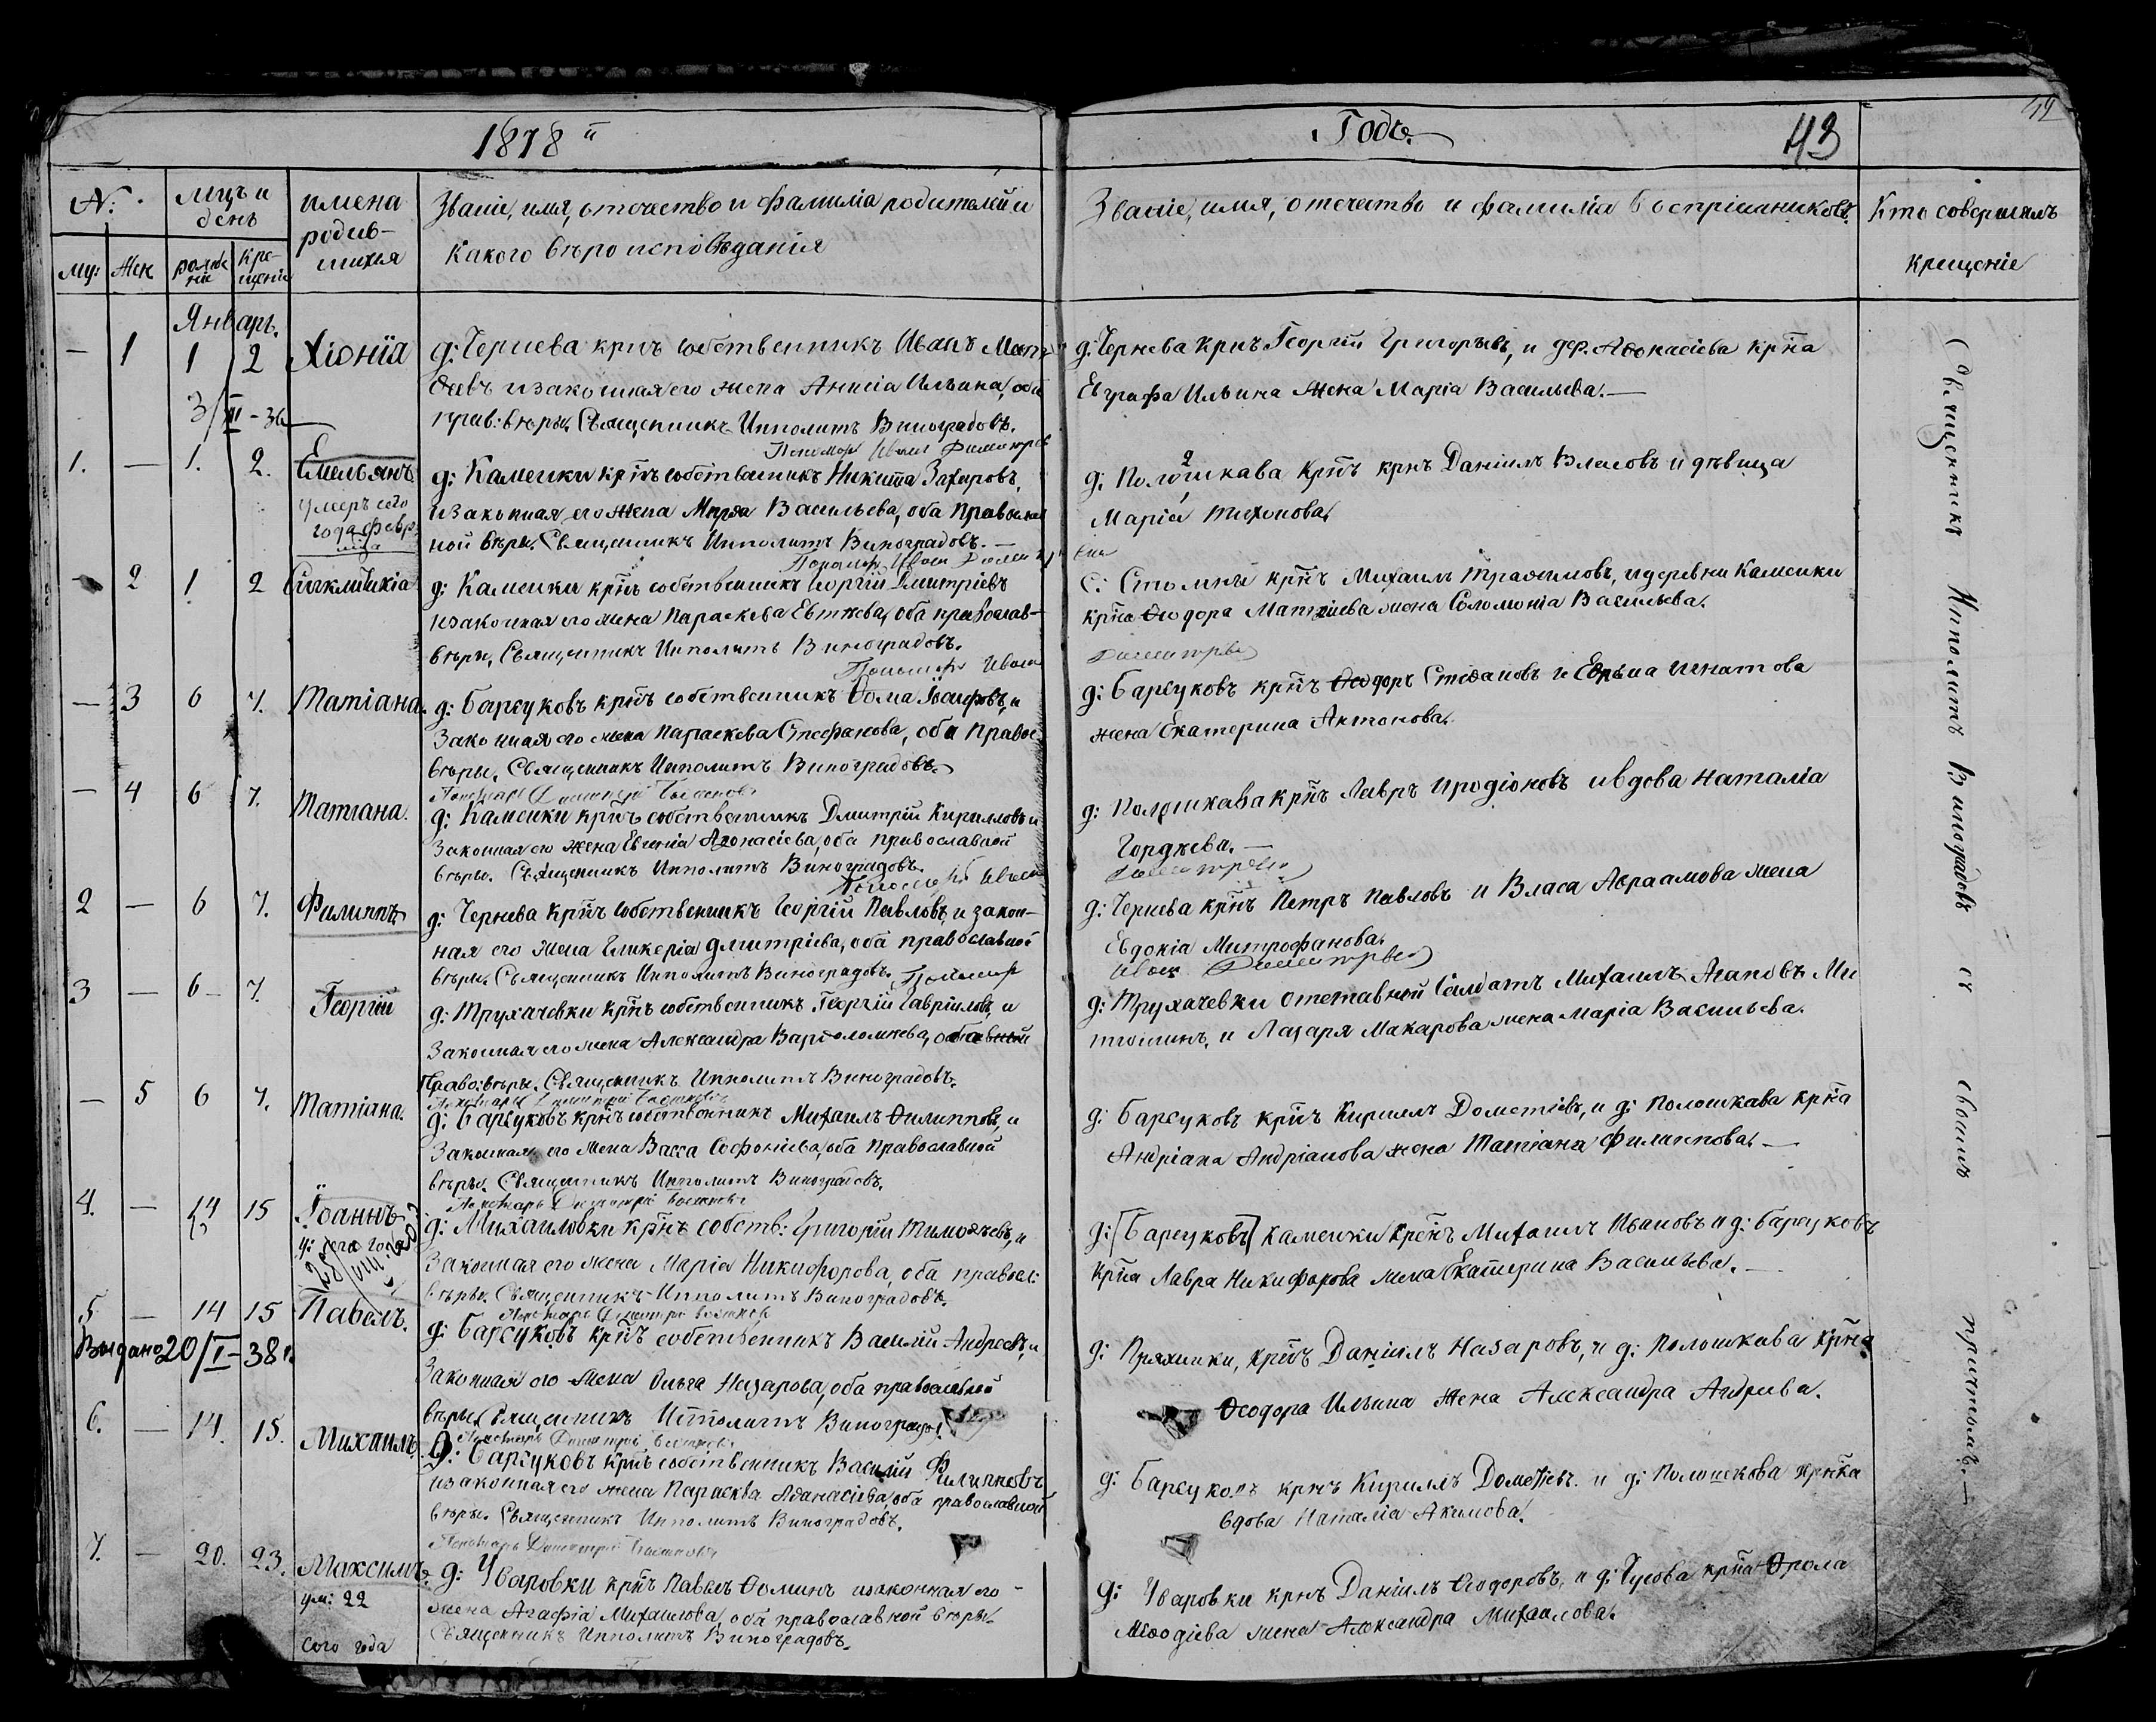 1878 й
Годъ.
43
№.
мѣцъ и день
имена родив-шихся
Званіе, имя, отечество и фамиліа родителей и
какого вѣроисповѣданія
Званіе, имя, отечество и фамиліа воспріемниковъ.
Кто совершалъ
крещеніе
му:
жен
рожденіе
кре-щенія
Январь.
— 1 1 2 Хіонія
д: Чернева крнъ собственникъ Иванъ
изаконная его жена Анисіа Ильина, оба
прав: вѣры. Священникъ Ипполитъ Виноградовъ.
д: Чернева крнъ Георгій Григорьевъ, и дер. Аѳонасіева крна
Евграфа Ильина жена Маріа Васильева.—
3/III-36
Пономарь Иванъ Димитрев
1. — 1. 2. Емельянъ
умеръ сего
года февр.
д: Каменки крнъ собственникъ Никита Захаровъ,
изаконная его жена Марѳа Васильева, оба православ
ной вѣры. Священникъ Ипполитъ Виноградовъ.—
д: Полошкава крнъ Даніилъ Власовъ и дѣвица
Маріа Тихонова.
Пономарь Иванъ Димит
— 2 1 2 Сѵнклитикіа
д: Каменки крнъ собственникъ Георгій Дмитріевъ
изаконная его жена Параскева Евтиева, оба православ-
вѣры, Священникъ Ипполитъ Виноградовъ.
с: Столпни крнъ Михаилъ Трафимовъ, идеревни Каменки
крна Ѳеодора Матѳіева жена Соломоніа Васильева.
Пономарь Иванъ
Димитрев
— 3 6 7. Татіана.
д: Барсуковъ крнъ собственникъ Ѳома Іосифовъ, и
законная его жена Параскева Стефанова, оба правос
вѣры. Священникъ Ипполитъ Виноградовъ.
д: Барсуковъ крнъ Ѳеодоръ Стефановъ и Ефрема Игнатова
жена Екатерина Антонова.
— 4 6 7. Татіана.
д: Каменки крнъ собственникъ Дмитрій Кирилловъ и
законная его жена Евгеніа Аѳонасіева, оба православной
вѣры. Священникъ Ипполитъ Виноградовъ.
д: Полошкава крнъ Лавръ Иродіоновъ ивдова Наталіа
Гордѣева.—
Пономарь Иванъ
Димитрев
2 — 6 7. Филиппъ
д: Чернева крнъ собственникъ Георгій Павловъ, и закон-
ная его жена Гликеріа Дмитріева, оба православной
вѣры. Священникъ Ипполитъ Виноградовъ. Пономарь
д: Чернева крнъ Петръ Павловъ и Власа Авраамова жена
Евдокіа Митрофанова.
Иванъ Димитрев
3 — 6 — 7. Георгій
д: Трухачевки крнъ собственникъ Георгій Гавриловъ, и
Законная его жена Александра Варѳоломеева, оба
Право: вѣры. Священникъ Ипполитъ Виноградовъ.
д: Трухачевки отставной Салдатъ Михаилъ Агаповъ Ми
тюшинъ, и Лазаря Макарова жена Маріа Васильева.
— 5 6 7. Татіана.
д: Барсуковъ крнъ собственникъ Михаилъ Филипповъ, и
Законная его жена Васса Софоніева, оба Православной
вѣры. Священникъ Ипполитъ Виноградовъ.
д: Барсуковъ крнъ Кириллъ Дометіевъ, и д: Полошкава крна
Андріана Андріанова жена Татіана Филиппова.—
4. — 14 15 Іоаннъ
у: сего года
д: Михайловки крнъ собств: Григорій Тимоѳѣевъ, и
Законная его жена Маріа Никифорова, оба правосл:
вѣры. Священникъ Ипполитъ Виноградовъ.
д: [Барсуковъ] Каменки крнъ Михаилъ Ивановъ и д: Барсуковъ
крна Лавра Никифорова жена Екатерина Васильева.—
5 — 14 15 Павелъ.
Выдано 20/I-38 г.
д: Барсуковъ крнъ собственникъ Василій Андреевъ, и
Законная его жена Ольга Назарова, оба православной
вѣры. Священникъ Ипполитъ Виноградов.
д: Пряхинки, крнъ Даніилъ Назаровъ, и д: Полошкава крна
Ѳеодора Ильина жена Александра Андреева.
6. — 14. 15. Михаилъ.
Д: Барсуковъ крнъ собственникъ Василій Филипповъ
изаконная его жена Параскева Аѳанасіева, оба православной
вѣры. Священникъ Ипполитъ Виноградовъ.
д: Барсуковъ крнъ Кириллъ Дометіевъ. и д: Полошкова крнка
вдова Наталіа Акимова.
7. — 20. 23. Максимъ.
ум: 22
сего года
д: Уваровки крнъ Павелъ Ѳоминъ изаконная его
жена Агафіа Михайлова, оба православной вѣры.
Священникъ Ипполитъ Виноградовъ.
д: Уваровки крнъ Даніилъ Ѳеодоровъ, и д: Гусова крна Фрола
Меѳодіева жена Александра Михаилова.
Священникъ Ипполитъ Виноградовъ съ своимъ причтомъ.—